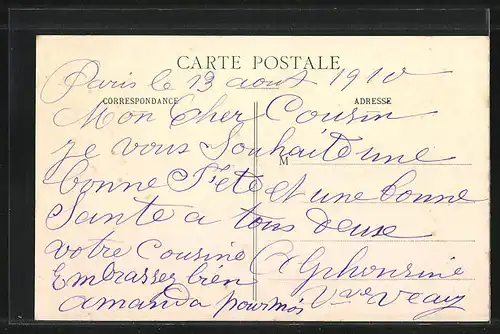 CARTE POSTALE
Paris le 13 aout 1910
CORRESPONDANCE
ADRESSE
Mon Cher Cousin
je vous Souhaite une
M
bonne Fete et une bonne
Sante a tous deux
votre Cousine
Alphonsine
Embrassez bien
Vve Veay
amanda pour moi